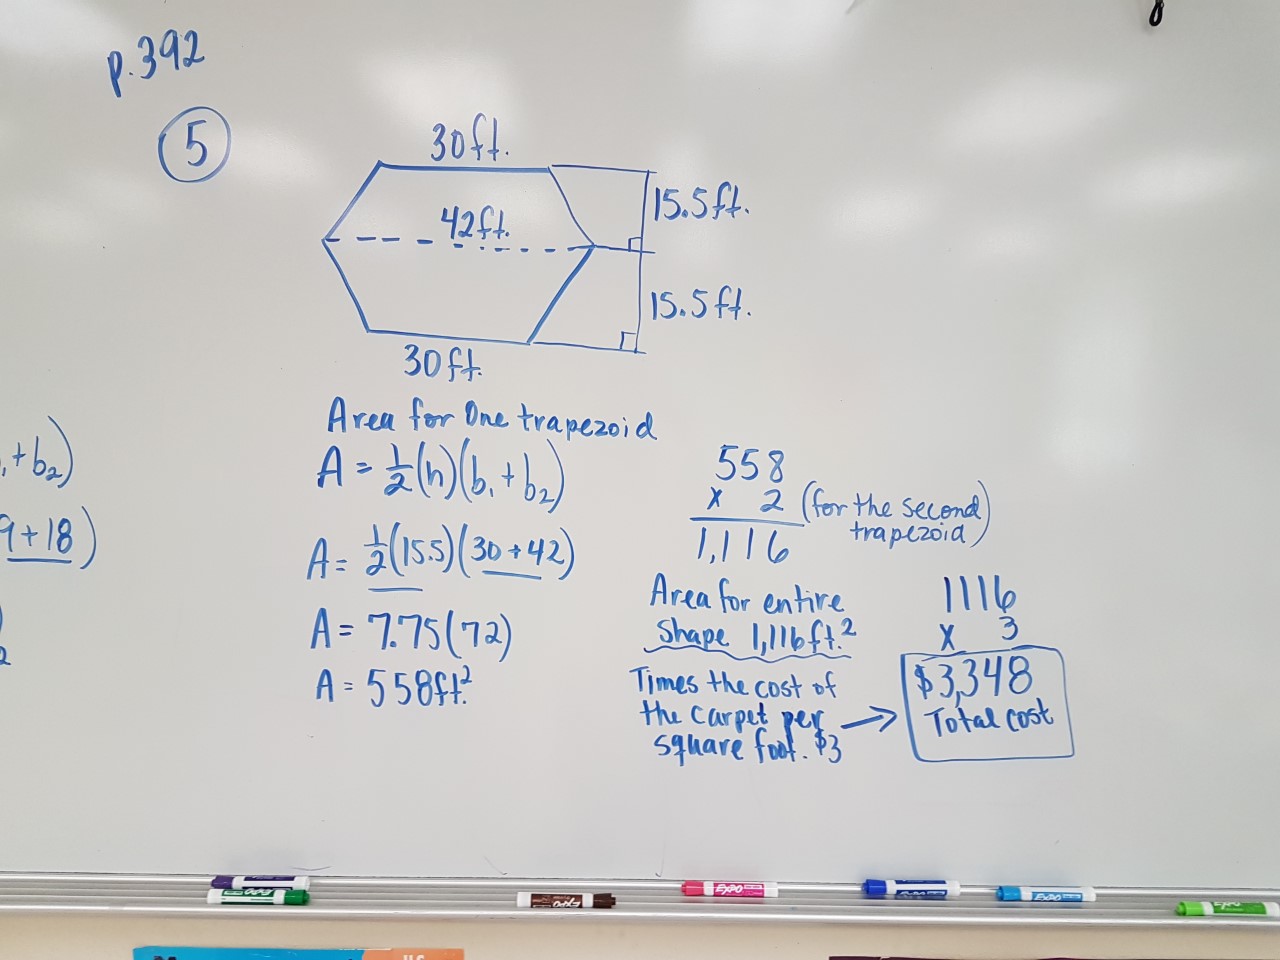 p.392
5
30ft.
15.5ft.
42ft.
15.5ft.
30ft.
+b₂)
9+18)
2
Area for One trapezoid
A = 1/2(h)(b₁ + b₂)
A = 1/2(15.5)(30+42)
A = 7.75(72)
A = 558ft.²
558
x 2 (for the second
trapezoid)
1,116
Area for entire
Shape 1,116ft.²
Times the cost of
the carpet per
square foot. $3
1116
x 3
$3,348
Total cost
EXPO
EXPO
EXPO
EXPO
EXPO
EXPO